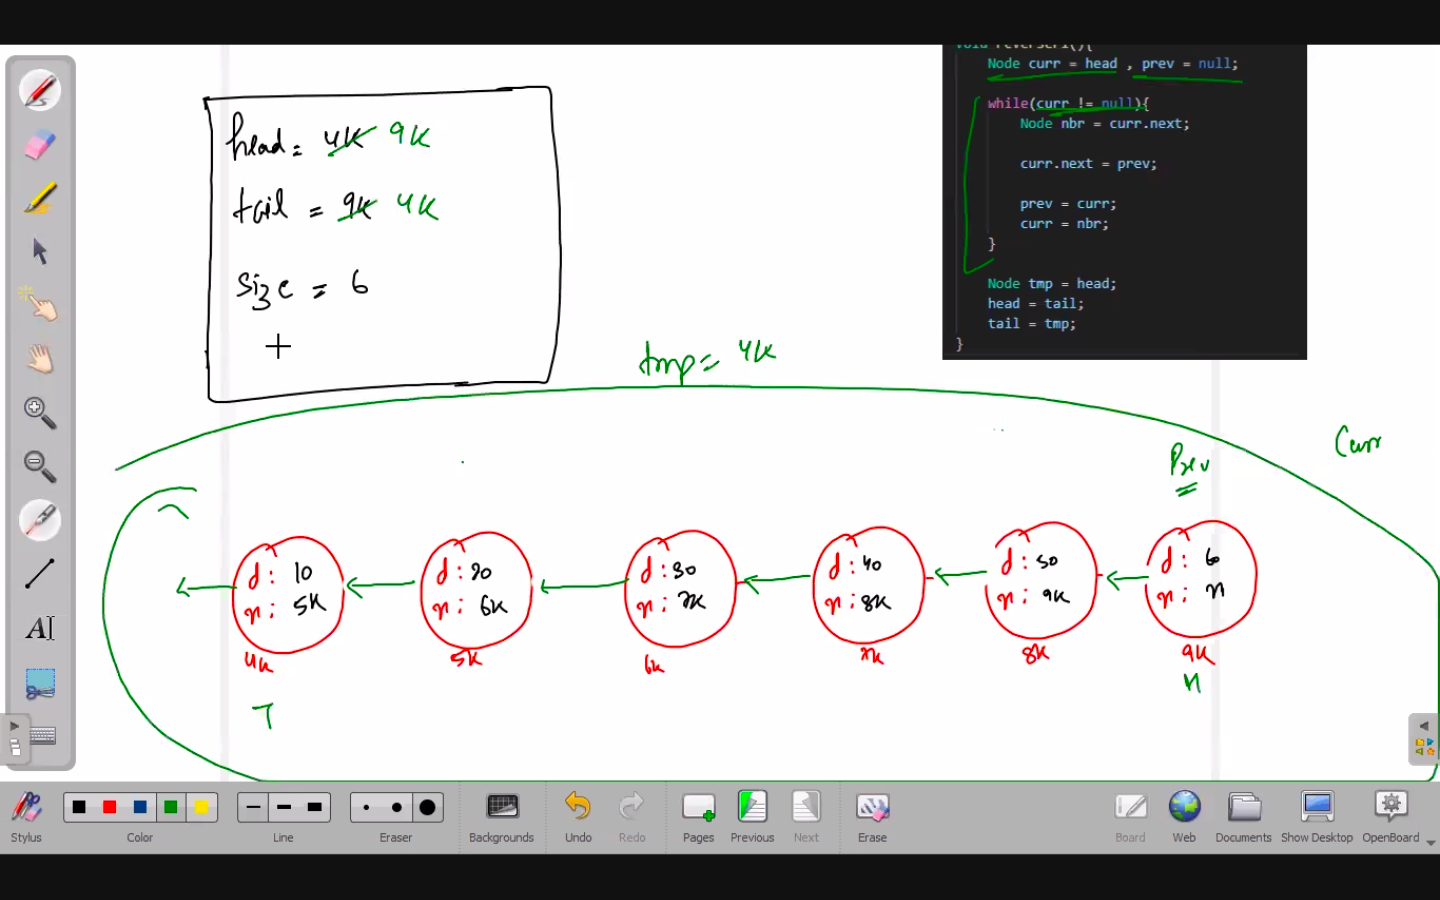 void reversePI(){
Node curr = head , prev = null;
while(curr != null){
Node nbr = curr.next;
curr.next = prev;
prev = curr;
curr = nbr;
}
Node tmp = head;
head = tail;
tail = tmp;
}
head = 4K 9K
tail = 9K 4K
size = 6
tmp = 4K
Curr
Prev
d: 10
n: 5K
4K
T
d: 20
n: 6K
5K
d: 30
n: 7K
6K
d: 40
n: 8K
7K
d: 50
n: 9K
8K
d: 60
n: n
9K
H
A
Stylus
Color
Line
Eraser
Backgrounds
Undo
Redo
Pages
Previous
Next
Erase
Board
Web
Documents
Show Desktop
OpenBoard